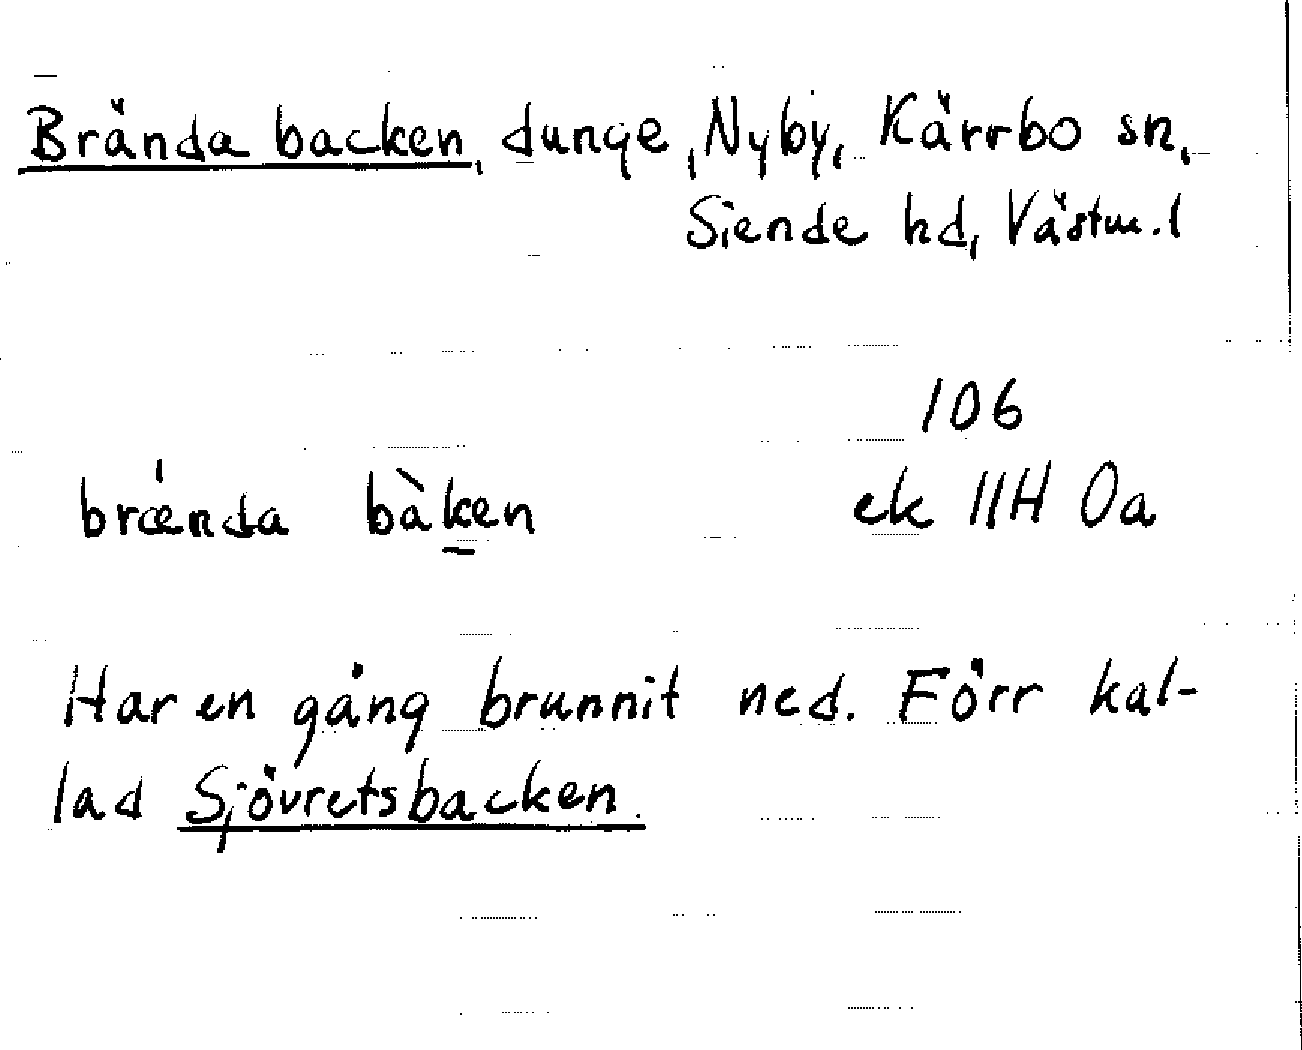 Brända backen, dunge, Nyby, Kärrbo sn,
Siende hd, Västm. l
106
brǽnda bàken
ek 11H 0a
Har en gång brunnit ned. Förr kal-
lad Sjövretsbacken.